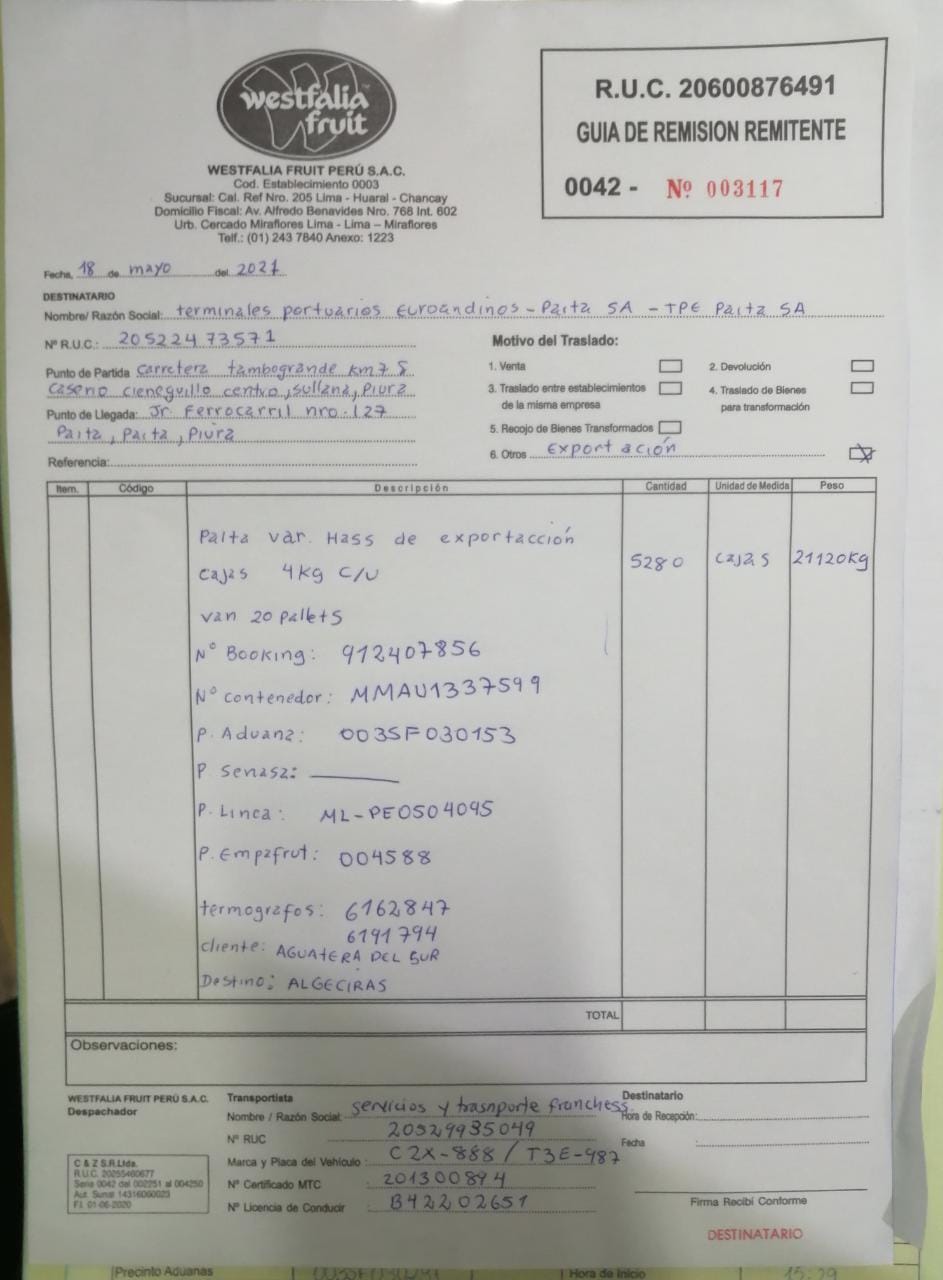 westfalia
fruit
WESTFALIA FRUIT PERÚ S.A.C.
Cod. Establecimiento 0003
Sucursal: Cal. Ref Nro. 205 Lima - Huaral - Chancay
Domicilio Fiscal: Av. Alfredo Benavides Nro. 768 Int. 602
Urb. Cercado Miraflores Lima - Lima – Miraflores
Telf.: (01) 243 7840 Anexo: 1223
R.U.C. 20600876491
GUIA DE REMISION REMITENTE
0042 - Nº 003117
Fecha, 18 de mayo del 2021
DESTINATARIO
Nombre/ Razón Social: terminales portuarios Euroandinos - Paita SA - TPE Paita SA
Nº R.U.C.: 20522473571
Punto de Partida Carretera tambogrande km 7.5
Caserio cieneguillo centro, sullana, Piura
Punto de Llegada: Jr. Ferrocarril nro. 127
Paita, Paita, Piura
Referencia:
Motivo del Traslado:
1. Venta
2. Devolución
3. Traslado entre establecimientos
de la misma empresa
4. Traslado de Bienes
para transformación
5. Recojo de Bienes Transformados
6. Otros Exportación
Item. Código Descripción Cantidad Unidad de Medida Peso
Palta var. Hass de exportacción
cajas 4kg c/u 5280 cajas 21120kg
van 20 pallets
Nº Booking: 912407856
Nº contenedor: MMAU1337599
P. Aduana: 003SF030153
P. Senasa:
P. Linea: ML-PE0504095
P. Empafrut: 004588
termografos: 6162847
6191794
cliente: AGUATERA DEL SUR
Destino: ALGECIRAS
TOTAL
Observaciones:
WESTFALIA FRUIT PERÚ S.A.C.
Despachador
C & Z S.R.Ltda.
R.U.C. 20255460677
Serie 0042 del 002251 al 004250
Aut. Sunat 14316060023
F.I. 01-06-2020
Transportista
Nombre / Razón Social: servicios y trasnporte franchess
Nº RUC 20529935049
Marca y Placa del Vehículo: C2X-888 / T3E-987
Nº Certificado MTC : 201300894
Nº Licencia de Conducir : B42202651
Destinatario
Hora de Recepción:
Fecha :
Firma Recibí Conforme
DESTINATARIO
Precinto Aduanas
Hora de Inicio 15:29